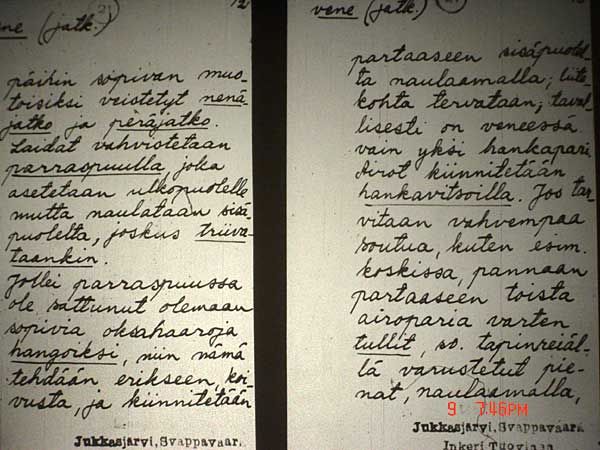 ne (jatk.) 21 12
päihin sopivan muo-
toisiksi veistetyt nenä-
jatko ja peräjatko.
Laidat vahvistetaan
parraspuulla, joka
asetetaan ulkopuolelle
mutta naulataan sisä-
puolelta, joskus triiva-
taankin.
Jollei parraspuussa
ole sattunut olemaan
sopivia oksahaaroja
hangoiksi, niin nämä
tehdään erikseen, koi-
vusta, ja kiinnitetään
Jukkasjärvi, Svappavaara
vene (jatk.) 21
partaaseen sisäpuolel-
ta naulaamalla; liite-
kohta tervataan; taval-
lisesti on veneessä
vain yksi hankapari.
Airot kiinnitetään
hankavitsoilla. Jos tar-
vitaan vahvempaa
soutua, kuten esim.
koskissa, pannaan
partaaseen toista
airoparia varten
tullit, so. tapinreiäl-
lä varustetut pie-
nat, naulaamalla,
9 7:46PM
Jukkasjärvi, Svappavaara
Inkeri Tuovinen